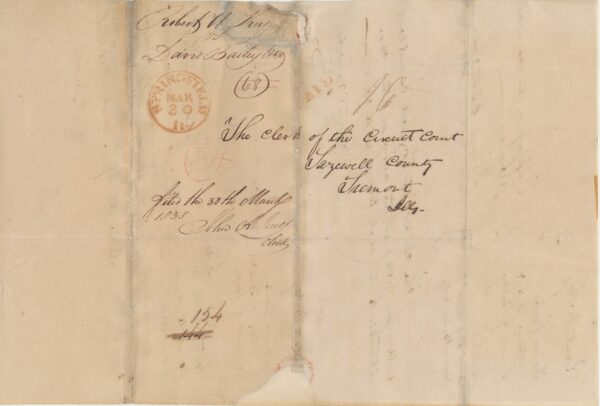 Robert W
vs
David Bailey
68
SPRINGFIELD
MAR
20
Il.
The Clerk of the Circuit Court
Tazewell County
Tremont
Ills.
Filed the 30th March
1838
John
Clerk
154
144